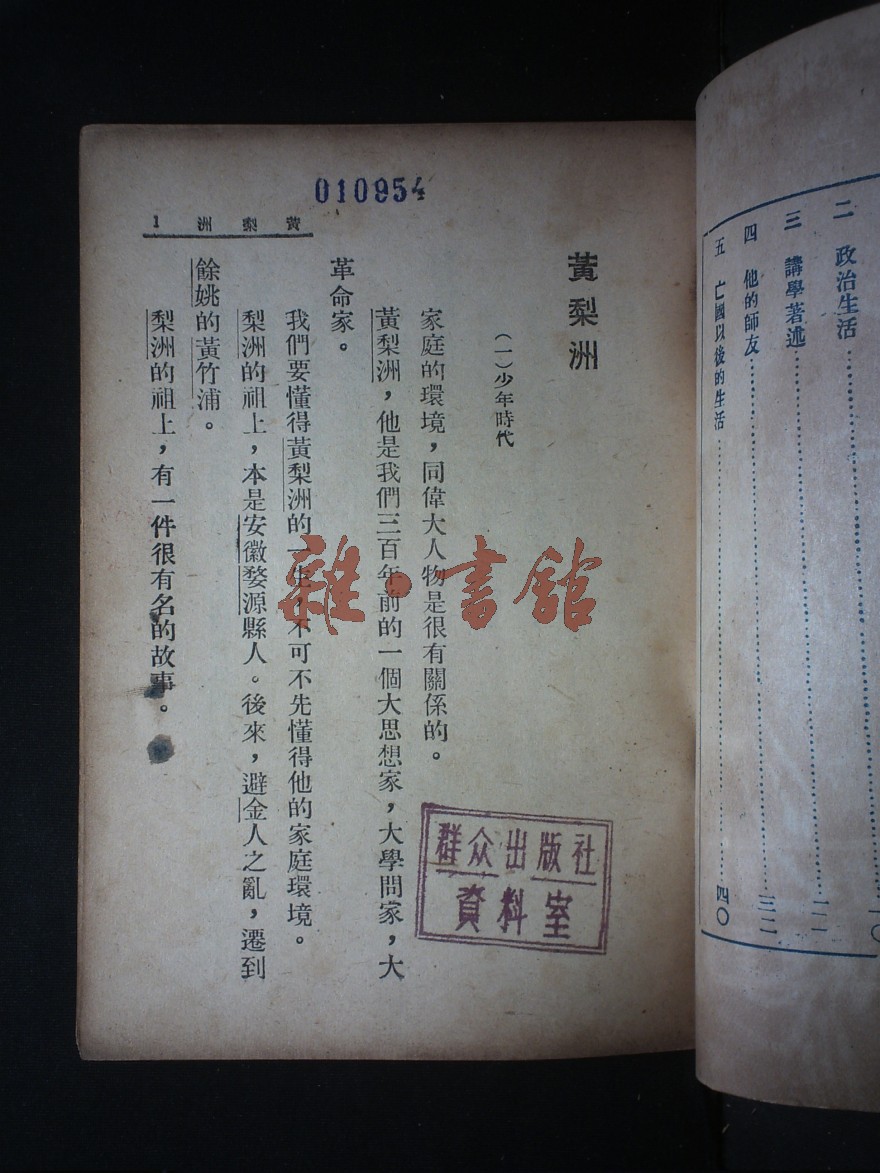 二　政治生活
三　講學著述
四　他的師友………三二
五　亡國以後的生活………四〇
010954
黃梨洲　1
黃梨洲
（一）少年時代
家庭的環境，同偉大人物是很有關係的。
黃梨洲，他是我們三百年前的一個大思想家，大學問家，大
革命家。
我們要懂得黃梨洲的一生，不可不先懂得他的家庭環境。
梨洲的祖上，本是安徽婺源縣人。後來，避金人之亂，遷到
餘姚的黃竹浦。
梨洲的祖上，有一件很有名的故事。
雜·書館
群众出版社
資料室